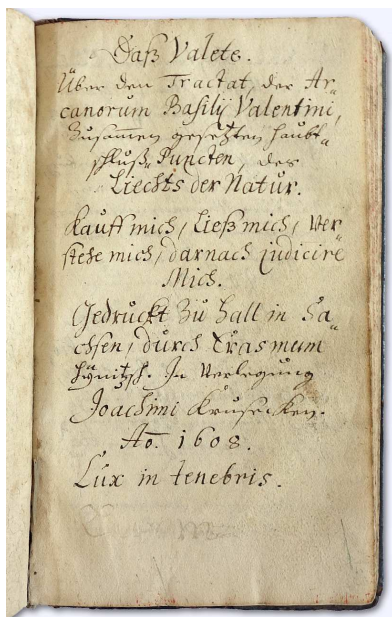 Daß Valete.
Über den Tractat, der Ar=
canorum Basilij Valentini,
Zusamen gesetzten haubt=
schluß Puncten, des
Liechts der Natur.
Kauff mich / Ließ mich / Ver=
stehe mich / darnach judicire
Mich.
Gedruckt Zu Hall in Sa=
chsen / durch Erasmum
Hÿnitzsch. In Verlegung
Joachimi Krusecken.
Ao. 1608.
Lux in tenebris.